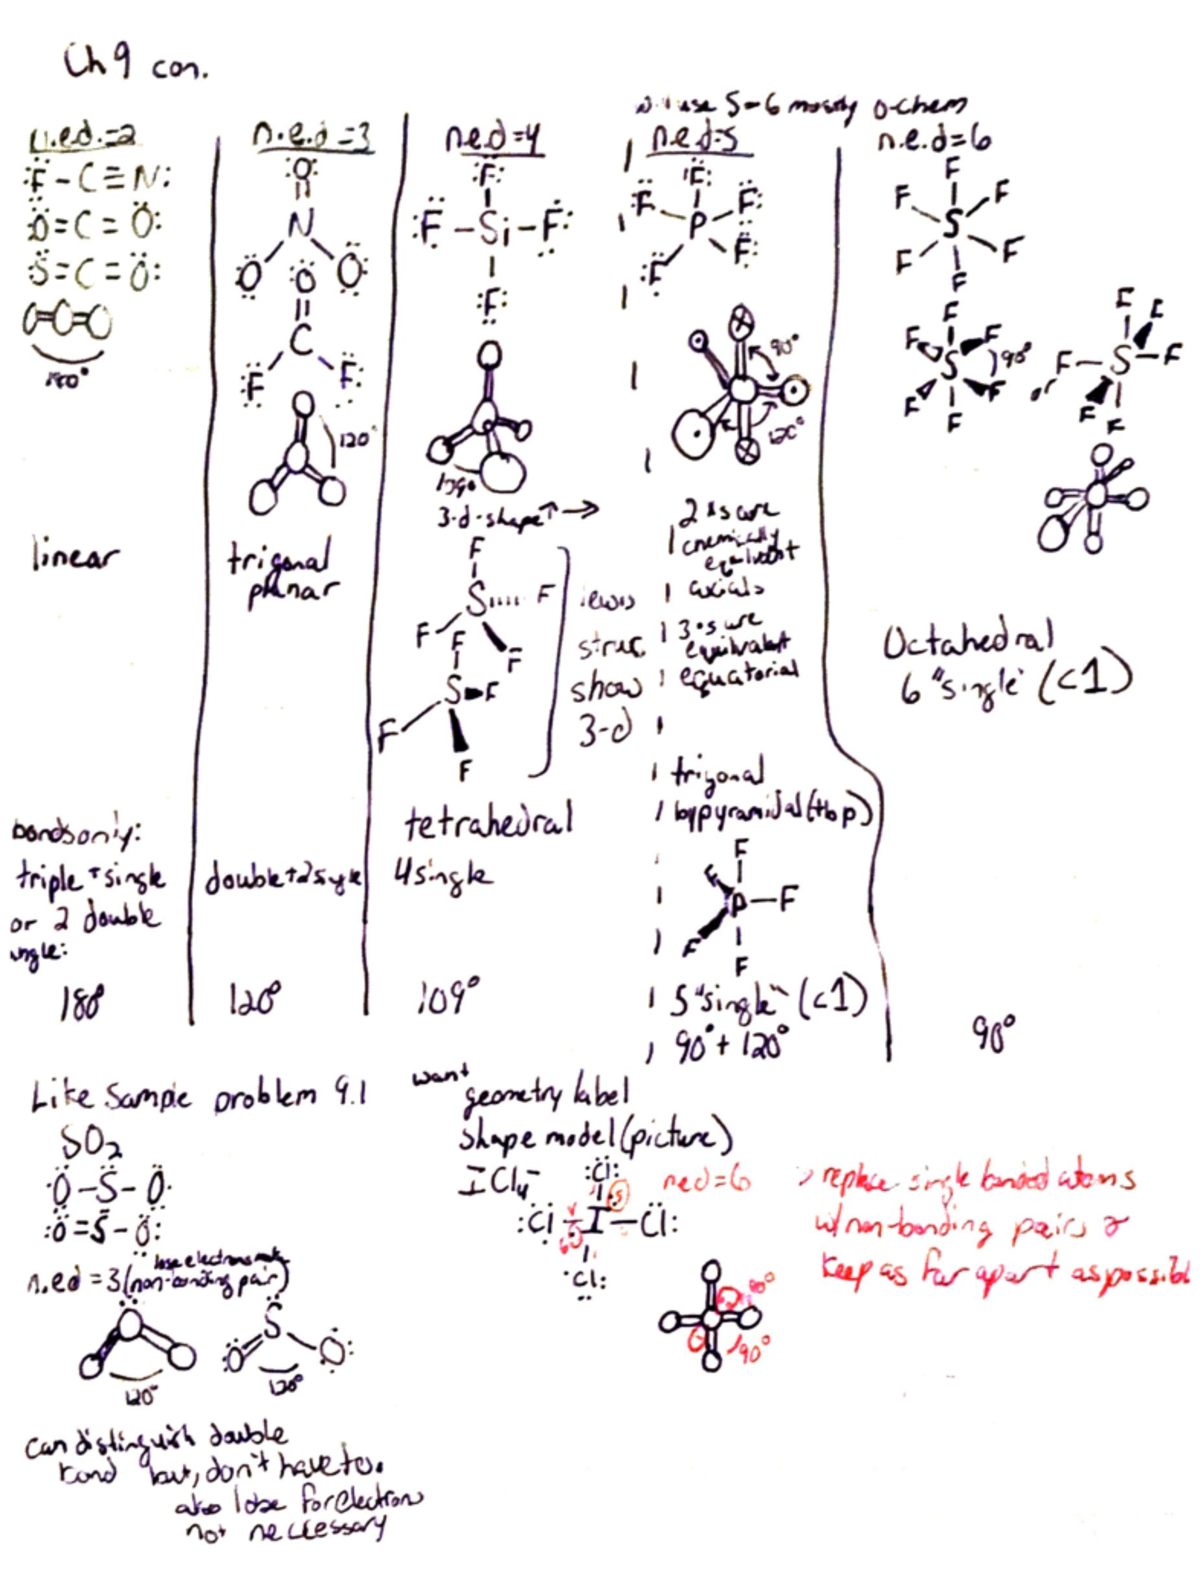 Ch 9 con.
will use 5-6 mostly o-chem
n.e.d.=2
:F-C≡N:
O=C=O:
S=C=O:
180°
linear
bonds only:
triple + single
or 2 double
angle:
180°
n.e.d=3
O
N
O O
O
C
F F
120°
trigonal
planar
double + 2 single
120°
n.e.d=4
F
F-Si-F
F
109°
3-d-shape ↑ →
F
S F
F F
F
S F
F
F
lewis
struc
show
3-d
tetrahedral
4 single
109°
n.e.d=5
F
F P F
F F
90°
120°
2 xs are
chemically
equivalent
axials
3 •s are
equivalent
equatorial
trigonal
bypyramidal (tbp)
F
F
P-F
F
F
5 "single" (<1)
90° + 120°
n.e.d=6
F
F F
S
F F
F
F
F F
S 90°
F F
F
or
F F
F-S-F
F F
Octahedral
6 "single" (<1)
90°
Like Sample problem 9.1
SO₂
:O-S-O:
:O=S-O:
lose electrons
n.ed = 3 (non-bonding pair)
120°
S
O O:
120°
can distinguish double
bond but, don't have to.
also lobe for electron
not neccessary
want
geometry label
shape model (picture)
ICl₄⁻
:Cl:
:Cl-I-Cl:
:Cl:
5
6
ned=6
90°
90°
replace single bonded atoms
w/non-bonding pairs &
keep as far apart as possibl